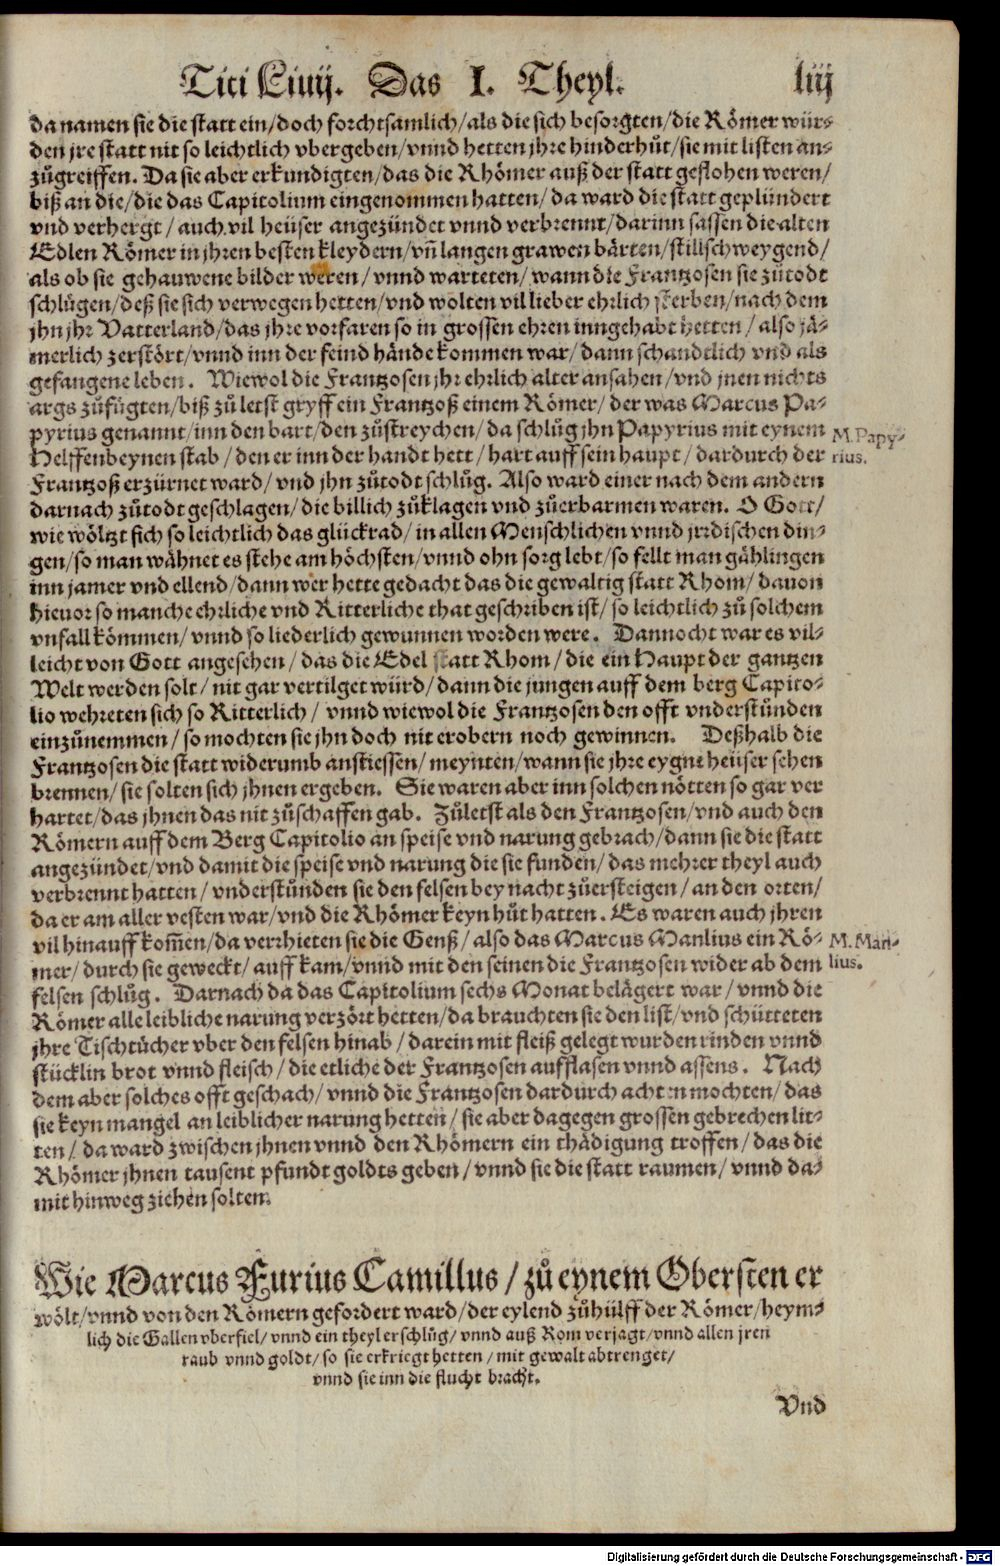 Titi Liuij. Das I. Theyl. liij
da namen sie die statt ein/doch forchtsamlich/als die sich besorgten/die Römer wür-
den jre statt nit so leichtlich vbergeben/vnnd hetten jhre hinderhůt/sie mit listen an-
zůgreiffen. Da sie aber erkundigten/das die Rhömer auß der statt geflohen weren/
biß an die/die das Capitolium eingenommen hatten/da ward die statt geplündert
vnd verhergt/auch vil heüser angezündet vnnd verbrennt/darinn sassen die alten
Edlen Römer in jhren besten kleydern/vn̄ langen grawen bärten/stillschweygend/
als ob sie gehauwene bilder weren/vnnd warteten/wann die Frantzosen sie zůtodt
schlůgen/deß sie sich verwegen hetten/vnd wolten vil lieber ehrlich sterben/nach dem
jhn jhr Vatterland/das jhre vorfaren so in grossen ehren inngehabt hetten/also jä-
merlich zerstört/vnnd inn der feind hände kommen war/dann schandtlich vnd als
gefangene leben. Wiewol die Frantzosen jhr ehrlich alter ansahen/vnd jnen nichts
args zůfügten/biß zů letst gryff ein Frantzoß einem Römer/der was Marcus Pa-
pyrius genannt/inn den bart/den zůstreychen/da schlůg jhn Papyrius mit eynem
M. Papy-
Helffenbeynen stab/den er inn der handt hett/hart auff sein haupt/dardurch der
rius.
Frantzoß erzürnet ward/vnd jhn zůtodt schlůg. Also ward einer nach dem andern
darnach zůtodt geschlagen/die billich zůklagen vnd zůerbarmen waren. O Gott/
wie wöltzt sich so leichtlich das glückrad/in allen Menschlichen vnnd jrrdischen din-
gen/so man wähnet es stehe am höchsten/vnnd ohn sorg lebt/so fellt man gählingen
inn jamer vnd ellend/dann wer hette gedacht das die gewaltig statt Rhom/dauon
hieuor so manche ehrliche vnd Ritterliche that geschriben ist/so leichtlich zů solchem
vnfall kömmen/vnnd so liederlich gewunnen worden were. Dannocht war es vil-
leicht von Gott angesehen/das die Edel statt Rhom/die ein Haupt der gantzen
Welt werden solt/nit gar vertilget würd/dann die jungen auff dem berg Capito-
lio wehreten sich so Ritterlich/vnnd wiewol die Frantzosen den offt vnderstůnden
einzůnemmen/so mochten sie jhn doch nit erobern noch gewinnen. Deßhalb die
Frantzosen die statt widerumb anstiessen/meynten/wann sie jhre eygne heüser sehen
brennen/sie solten sich jhnen ergeben. Sie waren aber inn solchen nötten so gar ver
hartet/das jhnen das nit zůschaffen gab. Zůletst als den Frantzosen/vnd auch den
Römern auff dem Berg Capitolio an speise vnd narung gebrach/dann sie die statt
angezündet/vnd damit die speise vnd narung die sie funden/das mehrer theyl auch
verbrennt hatten/vnderstůnden sie den felsen bey nacht zůersteigen/an den orten/
da er am aller vesten war/vnd die Rhömer keyn hůt hatten. Es waren auch jhren
vil hinauff kom̄en/da verrhieten sie die Genß/also das Marcus Manlius ein Rö-
M. Man-
mer/durch sie geweckt/auff kam/vnnd mit den seinen die Frantzosen wider ab dem
lius.
felsen schlůg. Darnach da das Capitolium sechs Monat belägert war/vnnd die
Römer alle leibliche narung verzört hetten/da brauchten sie den list/vnd schütteten
jhre Tischtücher vber den felsen hinab/darein mit fleiß gelegt wurden rinden vnnd
stücklin brot vnnd fleisch/die etliche der Frantzosen aufflasen vnnd assens. Nach
dem aber solches offt geschach/vnnd die Frantzosen dardurch achten mochten/das
sie keyn mangel an leiblicher narung hetten/sie aber dagegen grossen gebrechen lit-
ten/da ward zwischen jhnen vnnd den Rhömern ein thädigung troffen/das die
Rhömer jhnen tausent pfundt goldts geben/vnnd sie die statt raumen/vnnd da-
mit hinweg ziehen solten.
Wie Marcus Furius Camillus/zů eynem Obersten er
wölt/vnnd von den Römern gefordert ward/der eylend zůhülff der Römer/heym-
lich die Gallen vberfiel/vnnd ein theyl erschlůg/vnnd auß Rom verjagt/vnnd allen jren
raub vnnd goldt/so sie erkriegt hetten/mit gewalt abtrenget/
vnnd sie inn die flucht bracht.
Vnd
Digitalisierung gefördert durch die Deutsche Forschungsgemeinschaft - DFG